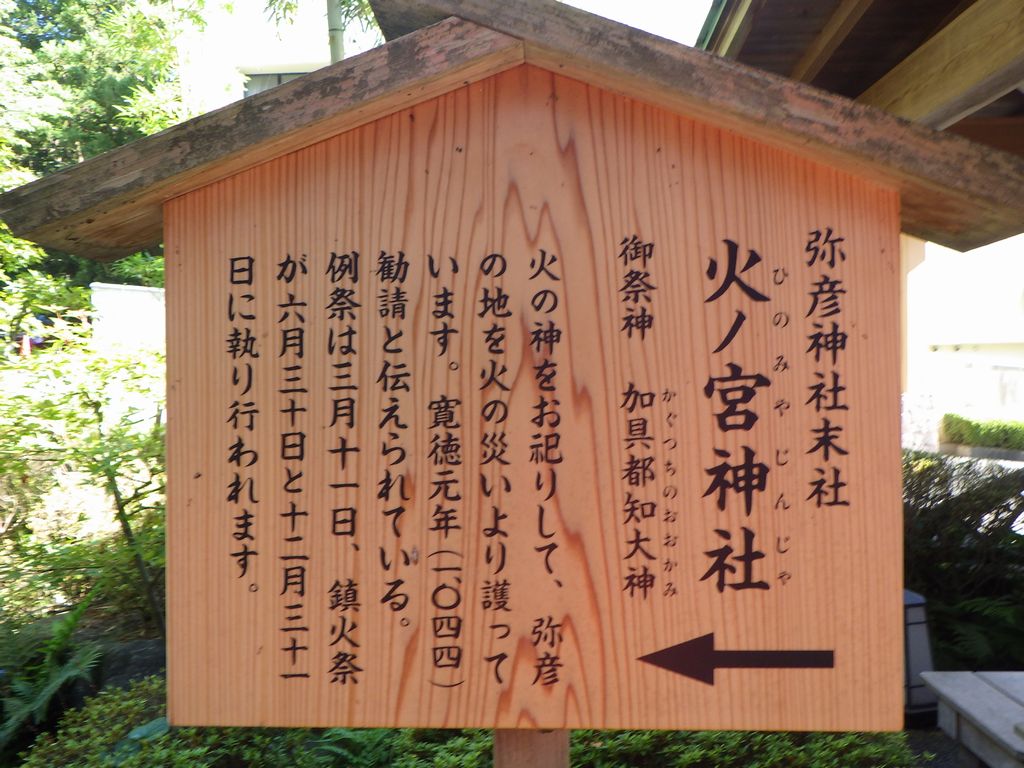 弥彦神社末社
ひのみやじんじゃ
火ノ宮神社
かぐつちのおおかみ
御祭神 加具都知大神
火の神をお祀りして、弥彦
の地を火の災いより護って
います。寛徳元年(一、〇四四)
勧請と伝えられている。
例祭は三月十一日、鎮火祭
が六月三十日と十二月三十一
日に執り行われます。